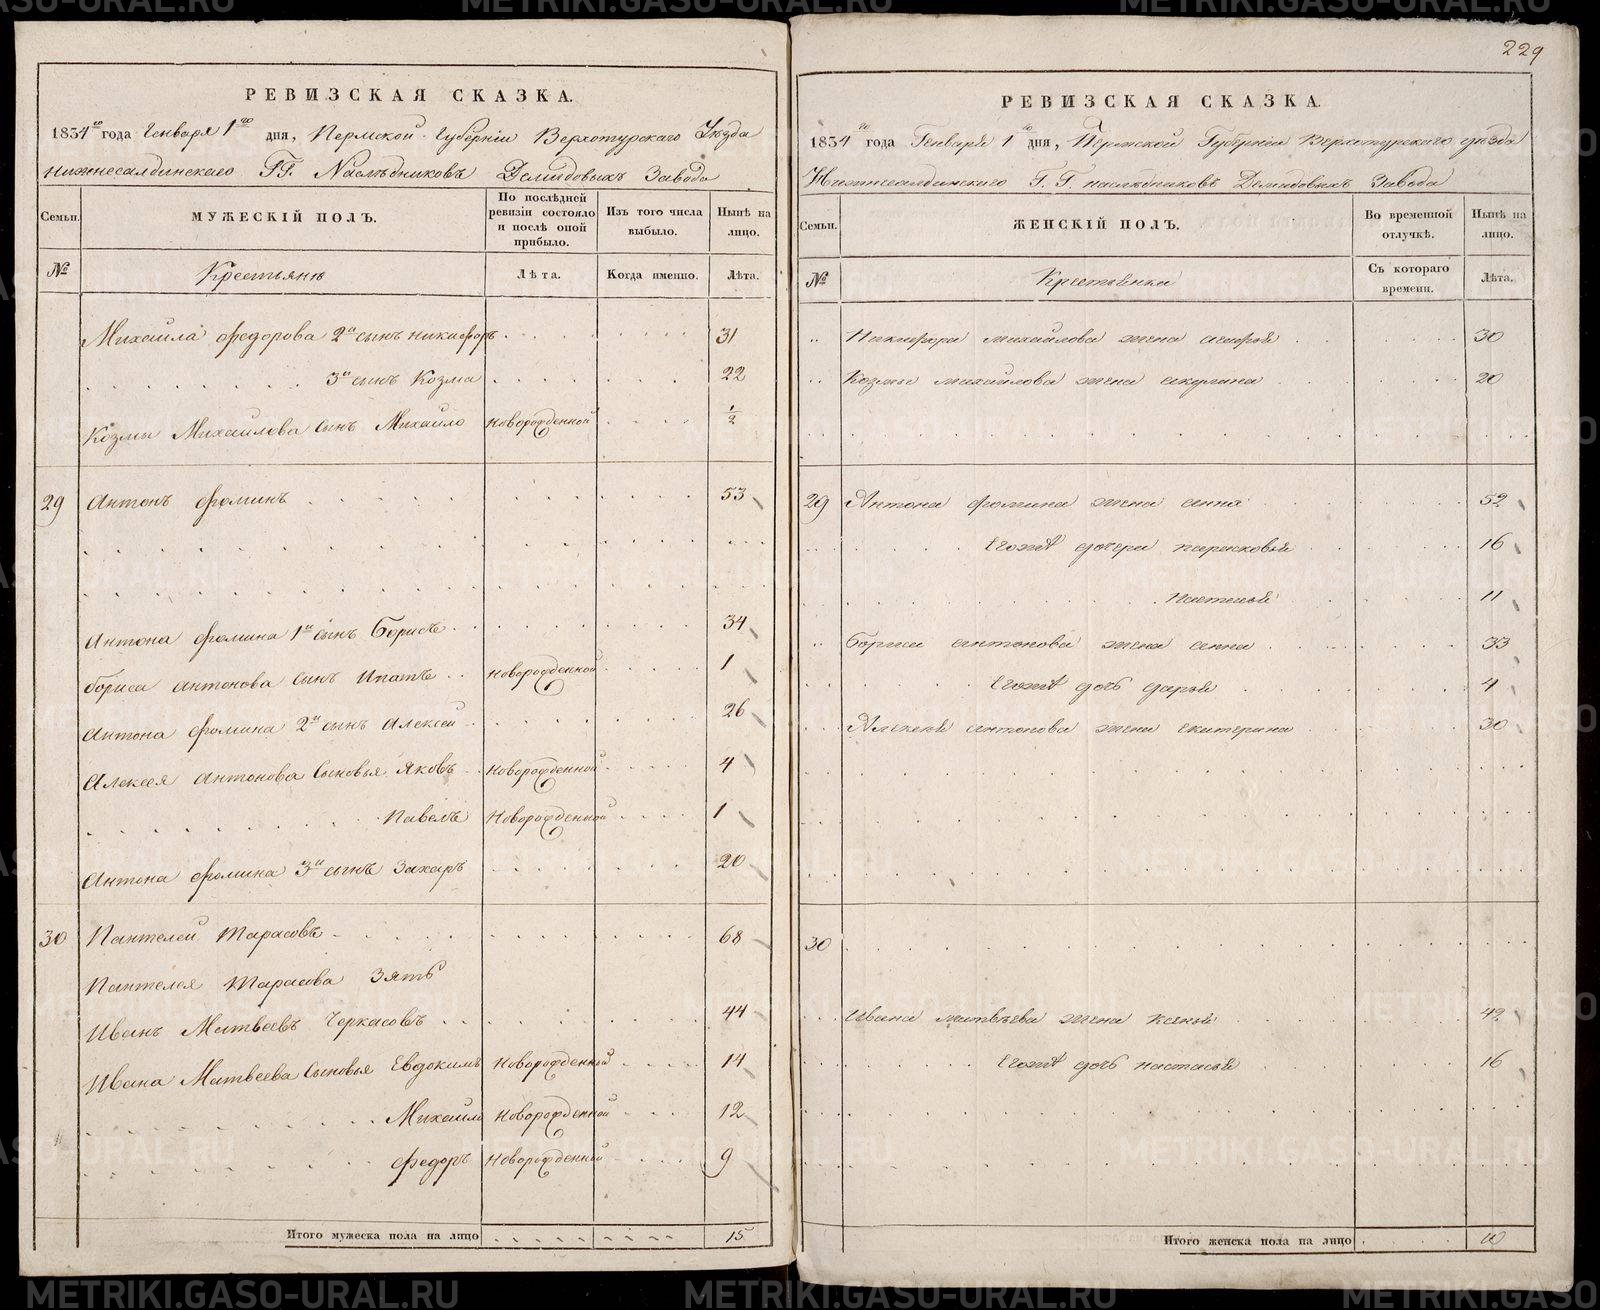 РЕВИЗСКАЯ СКАЗКА.
1834го года Генваря 1го дня, Пермской Губернiи Верхотурскаго Уѣзда
Нижнесалдинскаго Г.Г. Наслѣдниковъ Демидовыхъ Завода
Семьи. МУЖЕСКIЙ ПОЛЪ. По послѣдней ревизiи состояло и послѣ оной прибыло. Изъ того числа выбыло. Нынѣ на лицо.
№ Крестьянѣ Лѣта. Когда именно. Лѣта.
Михаила Федорова 2й сынъ Никифоръ 31
3й сынъ Козма 22
Козмы Михайлова сынъ Михайло Новорожденной 1/2
29 Антонъ Фоминъ 53
Антона Фомина 1й сынъ Борисъ 34
Бориса Антонова сынъ Ипатъ Новорожденной 1
Антона Фомина 2й сынъ Алексей 26
Алексея Антонова сыновья Яковъ Новорожденной 4
Павелъ Новорожденной 1
Антона Фомина 3й сынъ Захаръ 20
30 Пантелей Тарасовъ 68
Пантелея Тарасова Зять
Иванъ Матвеевъ Черкасовъ 44
Ивана Матвеева сыновья Евдокимъ Новорожденной 14
Михайло Новорожденной 12
Федоръ Новорожденной 9
Итого мужеска пола на лицо 15
229
РЕВИЗСКАЯ СКАЗКА.
1834го года Генваря 1го дня, Пермской Губернiи Верхотурскаго уѣзда
Нижнесалдинскаго Г.Г. наслѣдниковъ Демидовыхъ Завода
Семьи. ЖЕНСКIЙ ПОЛЪ. Во временной отлучкѣ. Нынѣ на лицо.
№ Крестьянки Съ котораго времени. Лѣта.
Никифора михайлова жена 30
Козмы михайлова жена акулина 20
29 Антона фомина жена анна 52
Егожъ дочери парасковья 16
Настасья 11
бориса антонова жена анна 33
Егожъ дочь дарья 4
Алексея антонова жена екатерина 30
30
Ивана матвѣева жена 42
Егожъ дочь настасья 16
Итого женска пола на лицо 10
METRIKI.GASO-URAL.RU